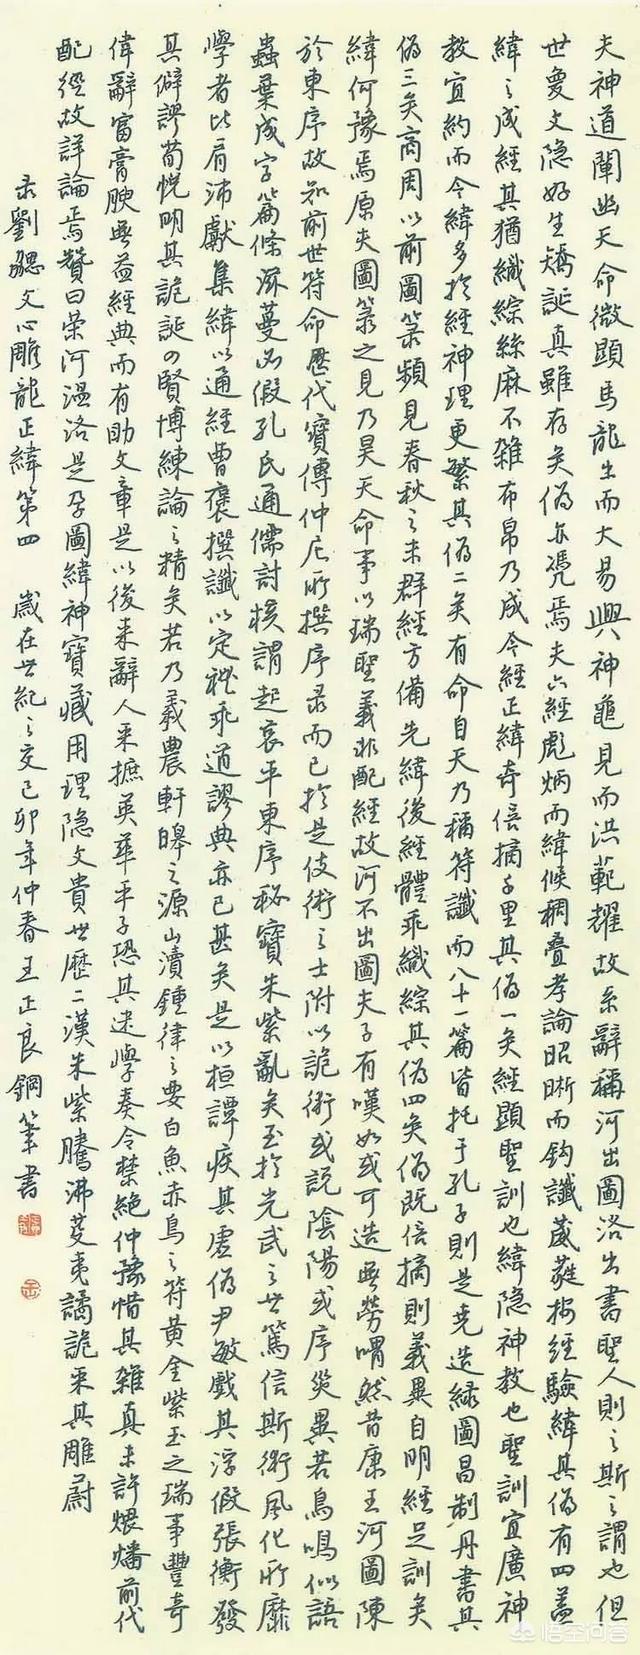 夫神道闡幽天命微顯馬龍出而大易興神龜見而洪範耀故系辭稱河出圖洛出書聖人則之斯之謂也但
世夐文隐好生矯誕真雖存矣偽亦凴焉夫六經彪炳而緯候稠叠孝論昭晰而鈎讖葳蕤按經驗緯其偽有四盖
緯之成經其猶織綜絲麻不雑布帛乃成今經正緯奇倍摘千里其偽一矣經顯聖訓也緯隐神教也聖訓宜廣神
教宜約而今緯多於經神理更繁其偽二矣有命自天乃稱符讖而八十一篇皆托于孔子則是堯造緑圖昌制丹書其
偽三矣商周以前圖箓頻見春秋之末群經方備先緯後經體乖織綜其偽四矣偽既倍摘則義異自明經足訓矣
緯何豫焉原夫圖箓之見乃昊天命事以瑞聖義非配經故河不出圖夫子有嘆如或可造無勞喟然昔康王河圖陳
於東序故知前世符命歷代寶傳仲尼所撰序录而已於是伎術之士附以詭術或説陰陽或序災異若鳥鳴似語
蟲葉成字篇條滋蔓必假孔氏通儒討核謂起哀平東序秘寶朱紫亂矣至於光武之世篤信斯術風化所靡
學者比肩沛獻集緯以通經曹褒撰讖以定禮乖道謬典亦已甚矣是以桓譚疾其虚偽尹敏戲其浮假張衡發
其僻謬荀悦明其詭誕四賢博練論之精矣若乃羲農軒皞之源山瀆鍾律之要白魚赤烏之符黄金紫玉之瑞事豐奇
偉辭富膏腴無益經典而有助文章是以後来辭人采摭英華平子恐其迷學奏令禁絶仲豫惜其雑真未許煨燔前代
配經故詳論焉贊曰荣河温洛是孕圖緯神寶藏用理隐文貴世歷二漢朱紫騰沸芟夷譎詭采其雕蔚
录劉勰文心雕龍正緯第四 歲在世紀之交己卯年仲春王正良鋼筆書
悟空问答